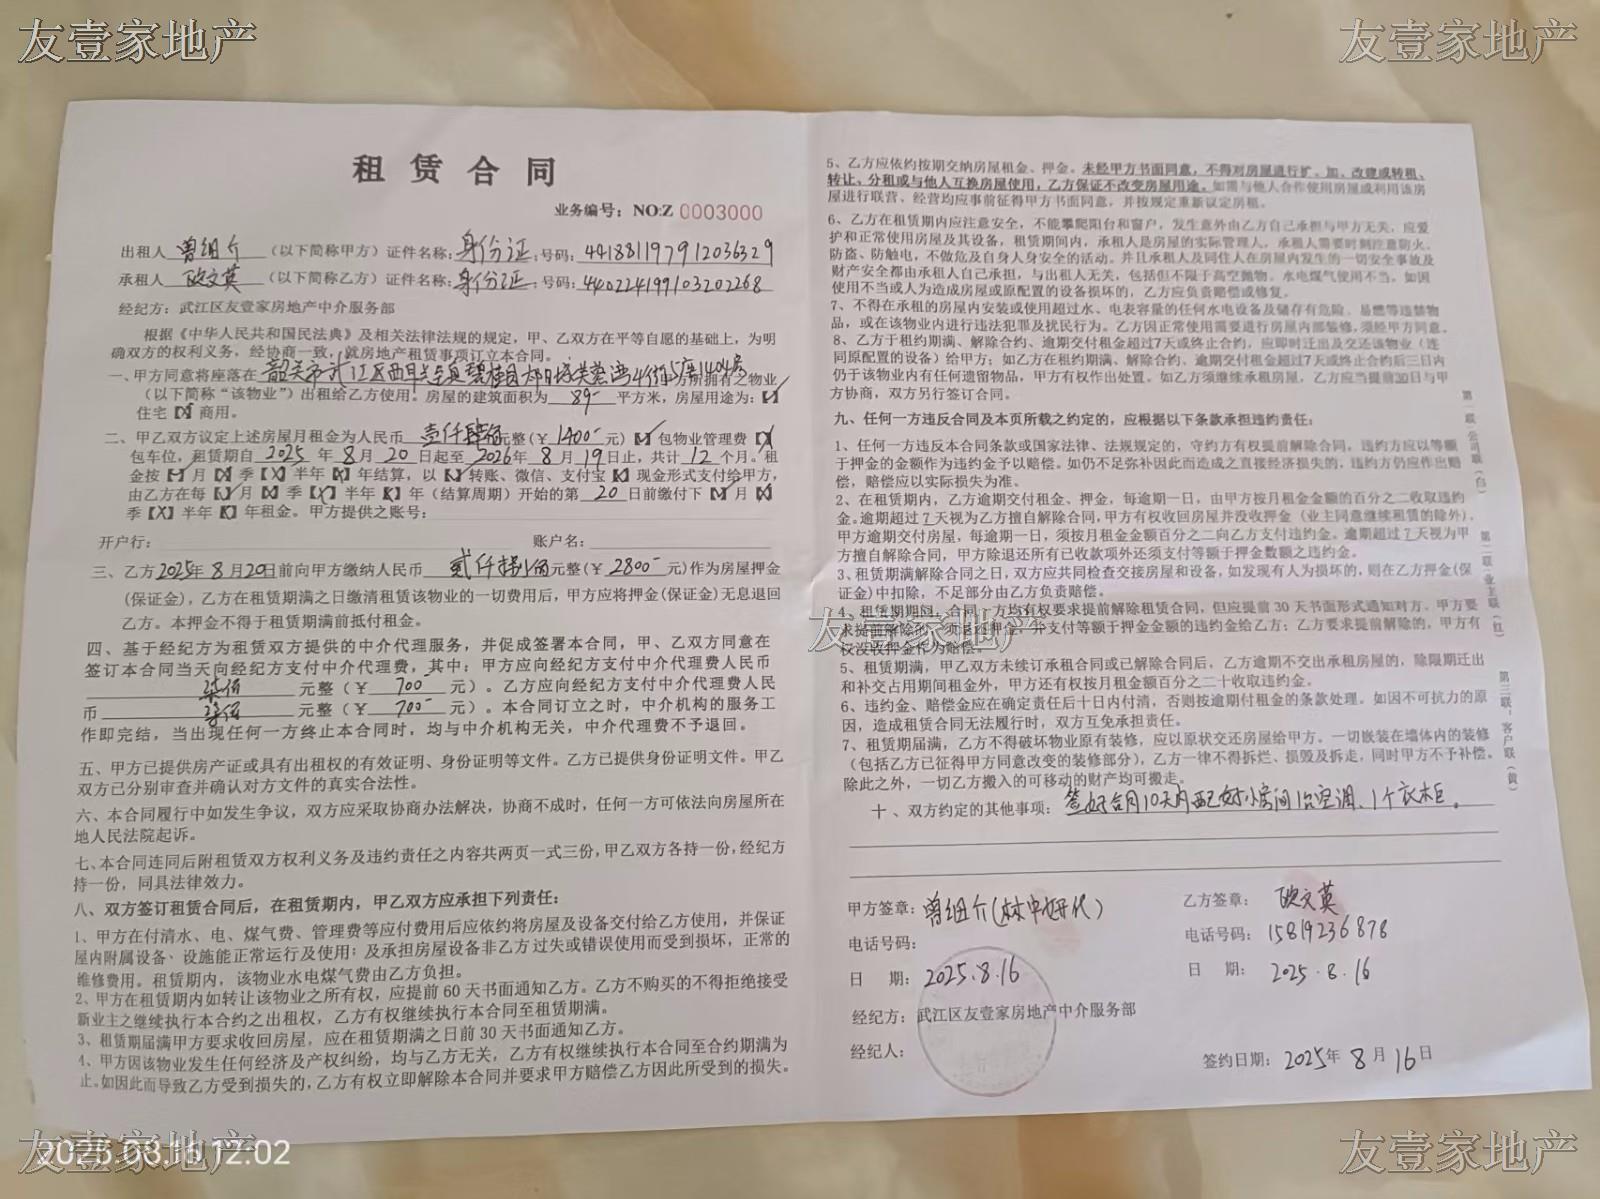 友壹家地产
友壹家地产
租赁合同
业务编号：NO:Z 0003000
出租人 曾组介 （以下简称甲方）证件名称：身份证：号码：441881197912036329
承租人 欧文英 （以下简称乙方）证件名称：身份证：号码：440224199103202268
经纪方：武江区友壹家房地产中介服务部
根据《中华人民共和国民法典》及相关法律法规的规定，甲、乙双方在平等自愿的基础上，为明
确双方的权利义务，经协商一致，就房地产租赁事项订立本合同。
一、甲方同意将座落在 韶关市武江区西联镇碧桂园太阳城芙蓉湾4街5座1404房 方所拥有之物业
（以下简称“该物业”）出租给乙方使用。房屋的建筑面积为 89 平方米，房屋用途为：【✓】
住宅【X】商用。
二、甲乙双方议定上述房屋月租金为人民币 壹仟肆佰 元整（￥ 1400 元）【✓】包物业管理费【X】
包车位，租赁期自 2025 年 8 月 20 日起至 2026 年 8 月 19 日止，共计 12 个月。租
金按【✓】月【X】季【X】半年【X】年结算，以【✓】转账、微信、支付宝【X】现金形式支付给甲方，
由乙方在每【✓】月【X】季【X】半年【X】年（结算周期）开始的第 20 日前缴付下【✓】月【X】
季【X】半年【X】年租金。甲方提供之账号：
开户行： 账户名：
三、乙方2025年8月20日前向甲方缴纳人民币 贰仟捌佰元整（￥ 2800 元）作为房屋押金
（保证金），乙方在租赁期满之日缴清租赁该物业的一切费用后，甲方应将押金（保证金）无息退回
乙方。本押金不得于租赁期满前抵付租金。
四、基于经纪方为租赁双方提供的中介代理服务，并促成签署本合同，甲、乙双方同意在
签订本合同当天向经纪方支付中介代理费，其中：甲方应向经纪方支付中介代理费人民币
柒佰 元整（￥ 700 元）。乙方应向经纪方支付中介代理费人民
币 柒佰 元整（￥ 700 元）。本合同订立之时，中介机构的服务工
作即完结，当出现任何一方终止本合同时，均与中介机构无关，中介代理费不予退回。
五、甲方已提供房产证或具有出租权的有效证明、身份证明等文件。乙方已提供身份证明文件。甲乙
双方已分别审查并确认对方文件的真实合法性。
六、本合同履行中如发生争议，双方应采取协商办法解决，协商不成时，任何一方可依法向房屋所在
地人民法院起诉。
七、本合同连同后附租赁双方权利义务及违约责任之内容共两页一式三份，甲乙双方各持一份，经纪方
持一份，同具法律效力。
八、双方签订租赁合同后，在租赁期内，甲乙双方应承担下列责任：
1、甲方在付清水、电、煤气费、管理费等应付费用后应依约将房屋及设备交付给乙方使用，并保证
屋内附属设备、设施能正常运行及使用；及承担房屋设备非乙方过失或错误使用而受到损坏，正常的
维修费用。租赁期内，该物业水电煤气费由乙方负担。
2、甲方在租赁期内如转让该物业之所有权，应提前60天书面通知乙方。乙方不购买的不得拒绝接受
新业主之继续执行本合约之出租权，乙方有权继续执行本合同至租赁期满。
3、租赁期届满甲方要求收回房屋，应在租赁期满之日前30天书面通知乙方。
4、甲方因该物业发生任何经济及产权纠纷，均与乙方无关，乙方有权继续执行本合同至合约期满为
止。如因此而导致乙方受到损失的，乙方有权立即解除本合同并要求甲方赔偿乙方因此所受到的损失。
5、乙方应依约按期交纳房屋租金、押金。未经甲方书面同意，不得对房屋进行扩、加、改建或转租、
转让、分租或与他人互换房屋使用，乙方保证不改变房屋用途。如需与他人合作使用房屋或利用该房
屋进行联营、经营均应事前征得甲方书面同意，并按规定重新议定房租。
6、乙方在租赁期内应注意安全，不能攀爬阳台和窗户，发生意外由乙方自己承担与甲方无关，应爱
护和正常使用房屋及其设备，租赁期间内，承租人是房屋的实际管理人，承租人需要时刻注意防火、
防盗、防触电，不做危及自身人身安全的活动。并且承租人及同住人在房屋内发生的一切安全事故及
财产安全都由承租人自己承担，与出租人无关，包括但不限于高空抛物、水电煤气使用不当。如因
使用不当或人为造成房屋或原配置的设备损坏的，乙方应负责赔偿或修复。
7、不得在承租的房屋内安装或使用超过水、电表容量的任何水电设备及储存有危险、易燃等违禁物
品，或在该物业内进行违法犯罪及扰民行为。乙方因正常使用需要进行房屋内部装修，须经甲方同意。
8、乙方于租约期满、解除合约、逾期交付租金超过7天或终止合约，应即时迁出及交还该物业（连
同原配置的设备）给甲方；如乙方在租约期满、解除合约、逾期交付租金超过7天或终止合约后三日内
仍于该物业内有任何遗留物品，甲方有权作出处置。如乙方须继续承租房屋，乙方应当提前30日与甲
方协商，双方另行签订合同。
九、任何一方违反合同及本页所载之约定的，应根据以下条款承担违约责任：
1、任何一方违反本合同条款或国家法律、法规规定的，守约方有权提前解除合同，违约方应以等额
于押金的金额作为违约金予以赔偿。如仍不足弥补因此而造成之直接经济损失的，违约方仍应作出赔
偿，赔偿应以实际损失为准。
2、在租赁期内，乙方逾期交付租金、押金，每逾期一日，由甲方按月租金金额的百分之二收取违约
金。逾期超过7天视为乙方擅自解除合同，甲方有权收回房屋并没收押金（业主同意继续租赁的除外）。
甲方逾期交付房屋，每逾期一日，须按月租金金额百分之二向乙方支付违约金。逾期超过7天视为甲
方擅自解除合同，甲方除退还所有已收款项外还须支付等额于押金数额之违约金。
3、租赁期满解除合同之日，双方应共同检查交接房屋和设备，如发现有人为损坏的，则在乙方押金（保
证金）中扣除，不足部分由乙方负责赔偿。
4、租赁期期间，合同一方均有权要求提前解除租赁合同，但应提前30天书面形式通知对方。甲方要
求提前解除的，须退还押金，并支付等额于押金金额的违约金给乙方；乙方要求提前解除的，甲方有
权没收押金作为赔偿。
友壹家地产
5、租赁期满，甲乙双方未续订承租合同或已解除合同后，乙方逾期不交出承租房屋的，除限期迁出
和补交占用期间租金外，甲方还有权按月租金额百分之二十收取违约金。
6、违约金、赔偿金应在确定责任后十日内付清，否则按逾期付租金的条款处理。如因不可抗力的原
因，造成租赁合同无法履行时，双方互免承担责任。
7、租赁期届满，乙方不得破坏物业原有装修，应以原状交还房屋给甲方。一切嵌装在墙体内的装修
（包括乙方已征得甲方同意改变的装修部分），乙方一律不得拆烂、损毁及拆走，同时甲方不予补偿。
除此之外，一切乙方搬入的可移动的财产均可搬走。
十、双方约定的其他事项：签好合同10天内配好小房间1台空调、1个衣柜。
第一联：公司联（白）
第二联：业主联（红）
第三联：客户联（黄）
甲方签章：曾组介(林中妤代)
乙方签章：欧文英
电话号码：
电话号码：15819236878
日 期：2025.8.16
日 期：2025.8.16
经纪方：武江区友壹家房地产中介服务部
经纪人：
签约日期：2025年8月16日
友壹家地产
2025.08.16 12:02
友壹家地产